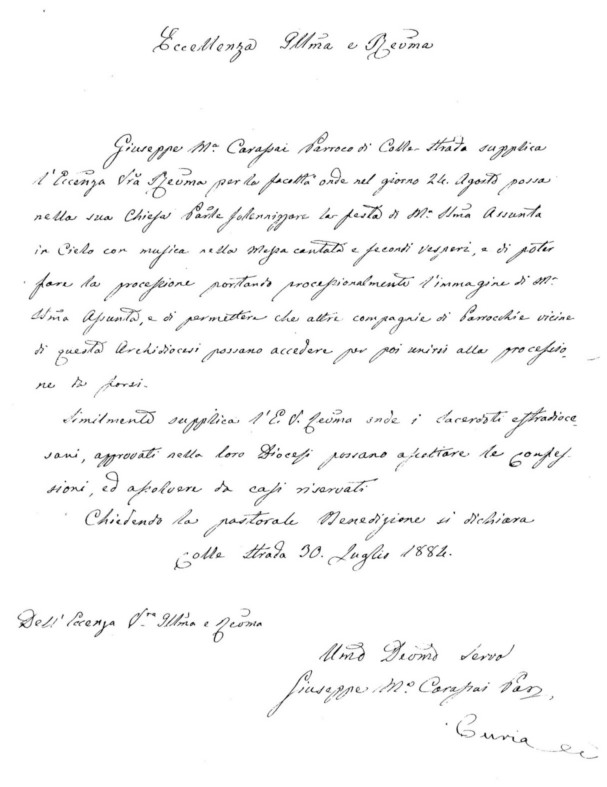 Eccellenza Illma e Revma
Giuseppe Ma Carassai Parroco di Colle Strada supplica
l'Eccenza Vra Revma per la facoltà onde nel giorno 24. Agosto possa
nella sua Chiesa Parle solennizzare la festa di Ma SSma Assunta
in Cielo con musica nella Messa cantata e secondi vesperi, e di poter
fare la processione portando processionalmente l'immagine di Ma
SSma Assunta, e di permettere che altre compagnie di Parrocchie vicine
di questa Archidiocesi possano accedere per poi unirsi alla processio-
ne da farsi.
Similmente supplica l'E. V. Revma onde i Sacerdoti estradioce-
sani, approvati nella loro Diocesi possano ascoltare le confes-
sioni, ed assolvere da casi riservati
Chiedendo la pastorale Benedizione si dichiara
Colle Strada 30. Luglio 1884.
Dell'Eccenza Vra Illma e Revma
Umo Devmo Servo
Giuseppe Ma Carassai Par
Curia